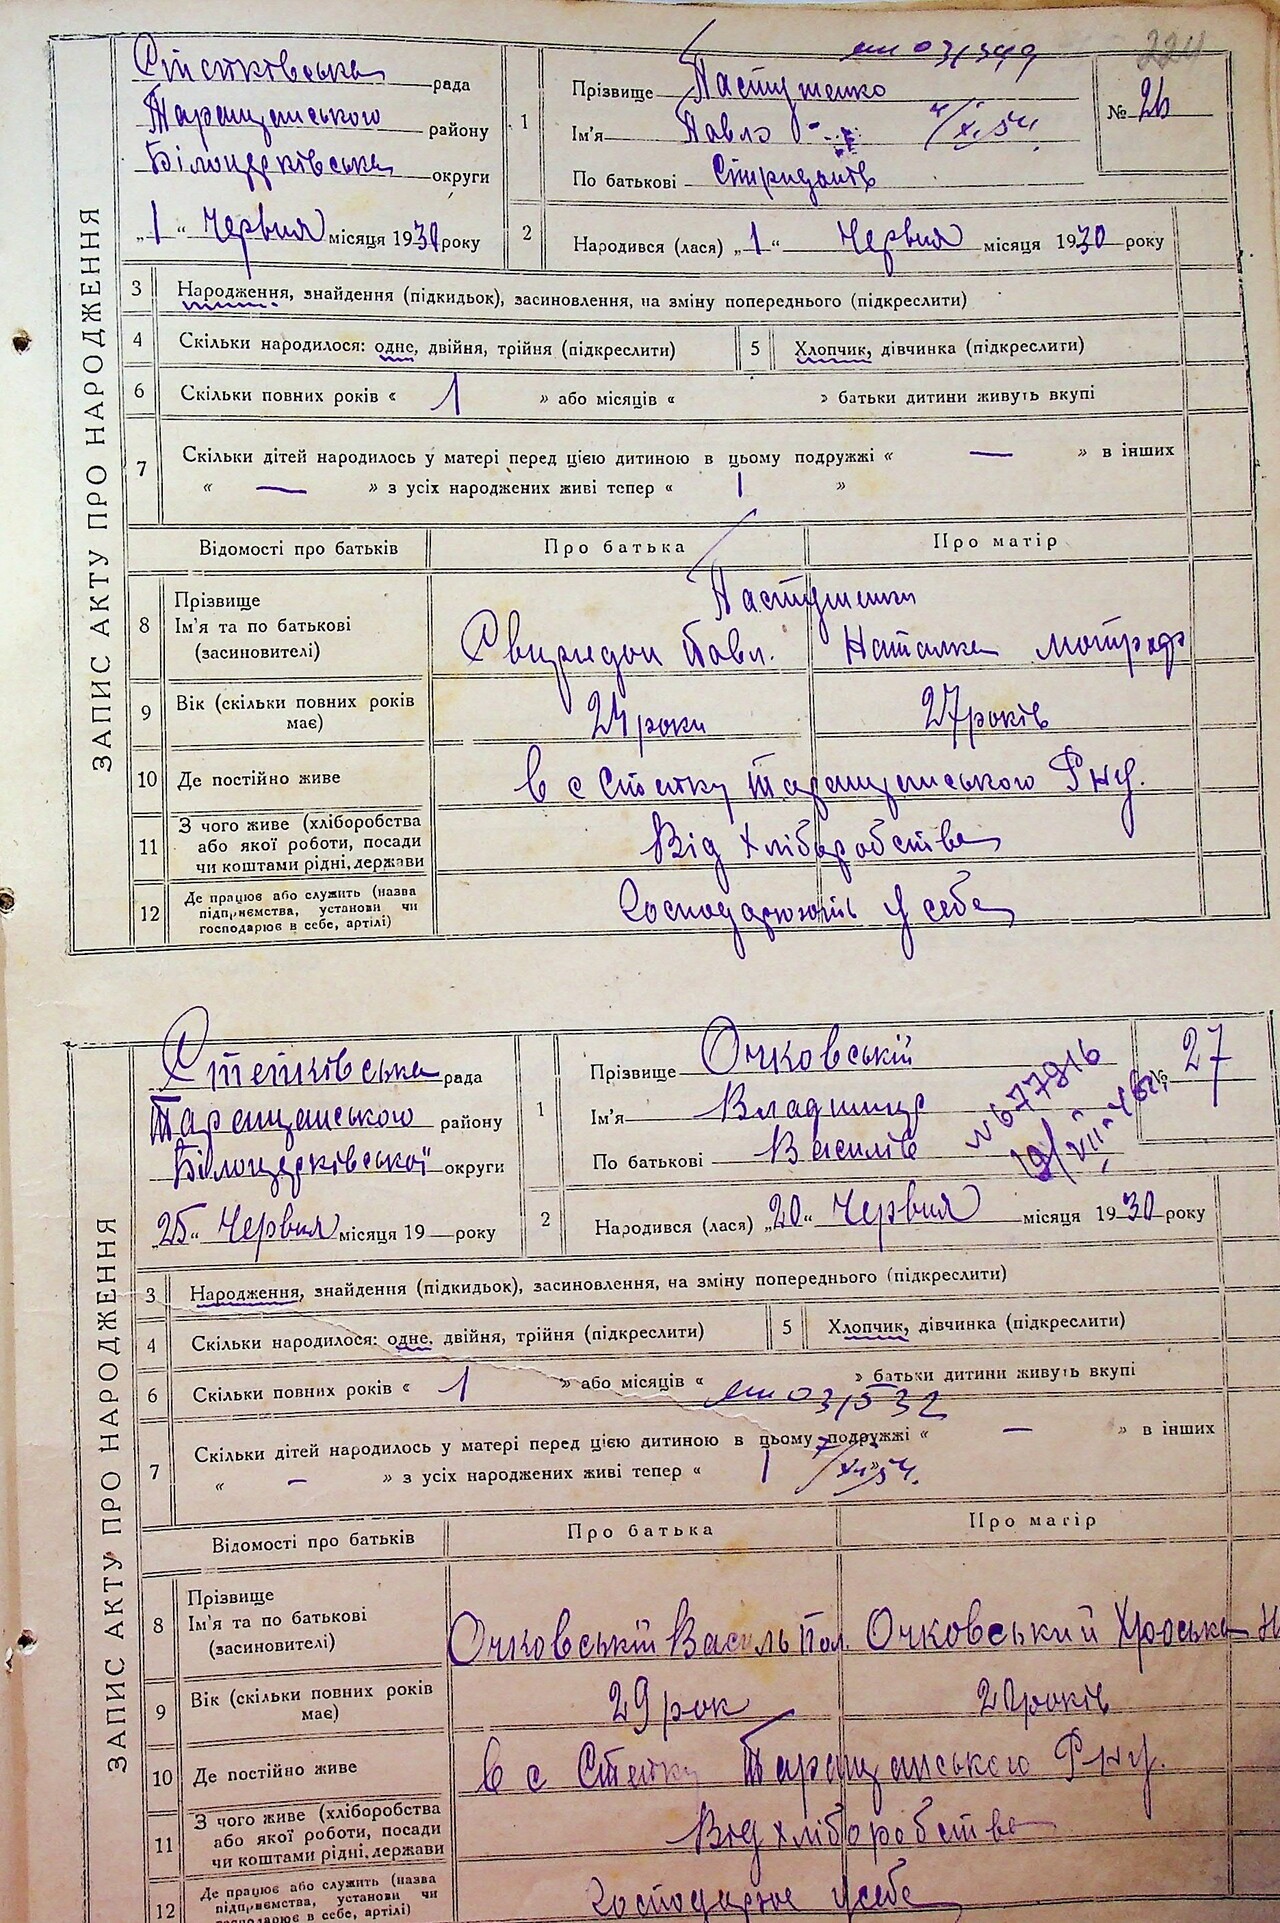 224
ЗАПИС АКТУ ПРО НАРОДЖЕННЯ
рада
Таращанського району
Білоцерківська округи
„1“ Червня місяця 1930 року
1
Прізвище Пастушенко
Ім'я Павло
По батькові
№ 26
2
Народився (лася) „1“ Червня місяця 1930 року
3 Народження, знайдення (підкидьок), засиновлення, на зміну попереднього (підкреслити)
4 Скільки народилося: одне, двійня, трійня (підкреслити)
5 Хлопчик, дівчинка (підкреслити)
6 Скільки повних років « 1 » або місяців « » батьки дитини живуть вкупі
7 Скільки дітей народилось у матері перед цією дитиною в цьому подружжі « — » в інших
« — » з усіх народжених живі тепер « 1 »
Відомості про батьків Про батька Про матір
8 Прізвище
Ім'я та по батькові
(засиновителі)
Пастушенки
Свиридон Павл. Наталка
9 Вік (скільки повних років
має)
24 роки 27 років
10 Де постійно живе в с Таращанського Р-ну.
11 З чого живе (хліборобства
або якої роботи, посади
чи коштами рідні, держави
Від Хліборобства
12 Де працює або служить (назва
підприємства, установи чи
господарює в себе, артілі)
Господарюють у себе
ЗАПИС АКТУ ПРО НАРОДЖЕННЯ
рада
Таращанського району
Білоцерківської округи
„25“ Червня місяця 19— року
1
Прізвище Очковській
Ім'я Владимир
По батькові Василів
№ 27
N 677916
2
Народився (лася) „20“ Червня місяця 1930 року
3 Народження, знайдення (підкидьок), засиновлення, на зміну попереднього (підкреслити)
4 Скільки народилося: одне, двійня, трійня (підкреслити)
5 Хлопчик, дівчинка (підкреслити)
6 Скільки повних років « 1 » або місяців « » батьки дитини живуть вкупі
7 Скільки дітей народилось у матері перед цією дитиною в цьому подружжі « — » в інших
« — » з усіх народжених живі тепер « 1 »
Відомості про батьків Про батька Про матір
8 Прізвище
Ім'я та по батькові
(засиновителі)
Очковській Василь Пол. Очковський
9 Вік (скільки повних років
має)
29 рок років
10 Де постійно живе в с Таращанського Р-ну.
11 З чого живе (хліборобства
або якої роботи, посади
чи коштами рідні, держави
Від хліборобства
12 Де працює або служить (назва
підприємства, установи чи
господарює в себе, артілі)
Господарює у себе